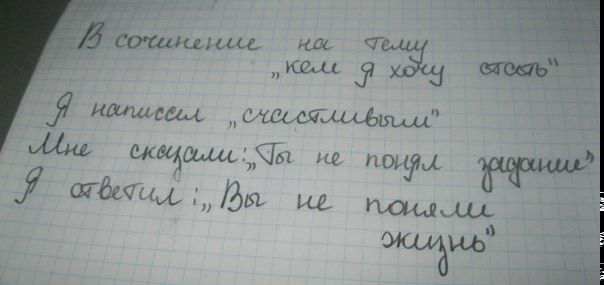 В сочинение на тему
„кем я хочу стать"
Я написал „счастливым"
Мне сказали:„Ты не понял задание"
Я ответил:„Вы не поняли
жизнь"